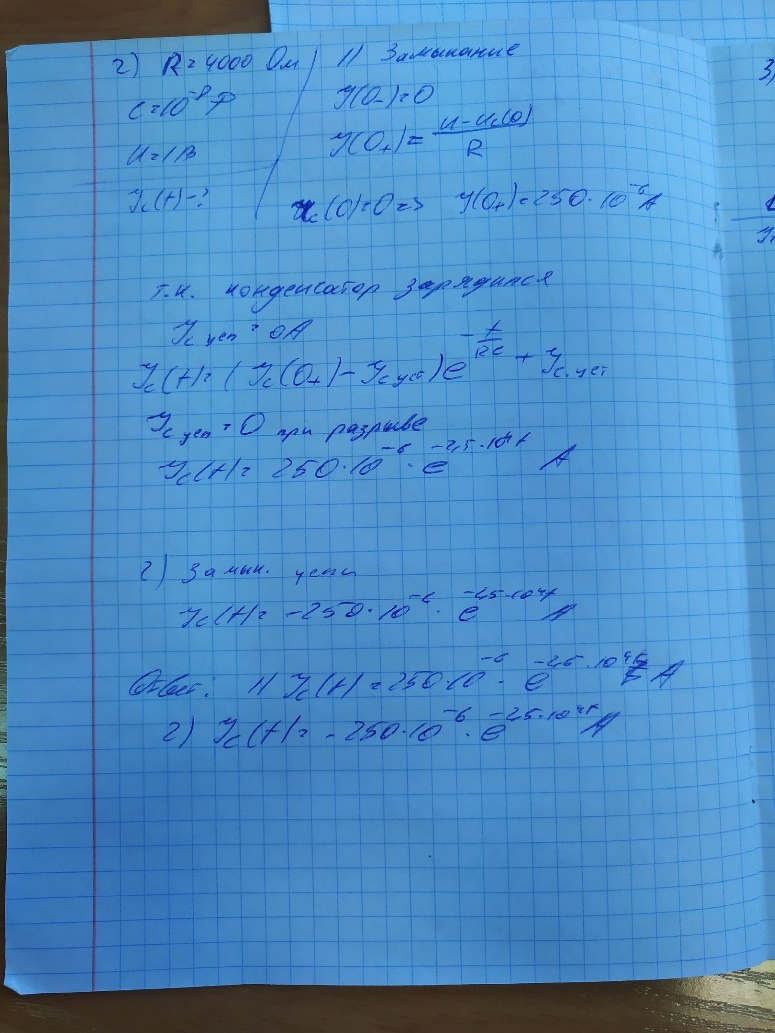 2) R = 4000 Ом
C = 10⁻⁸ Ф
U = 1 В
Jc(t) - ?
1) Замыкание
J(0-) = 0
J(0+) = (U - Uc(0)) / R
Uc(0) = 0 => J(0+) = 250 · 10⁻⁶ A
т.к. конденсатор зарядился
Jc уст = 0A
Jc(t) = (Jc(0+) - Jc уст) e^(-t/RC) + Jc.уст
Jc уст = 0 при разрыве
Jc(t) = 250 · 10⁻⁶ · e^(-2,5·10⁴t) A
2) Замык. цепи
Jc(t) = -250 · 10⁻⁶ · e^(-25·10⁴t) A
Ответ: 1) Jc(t) = 250·10⁻⁶ · e^(-25·10⁴t) A
2) Jc(t) = -250·10⁻⁶ · e^(-25·10⁴t) A
3)